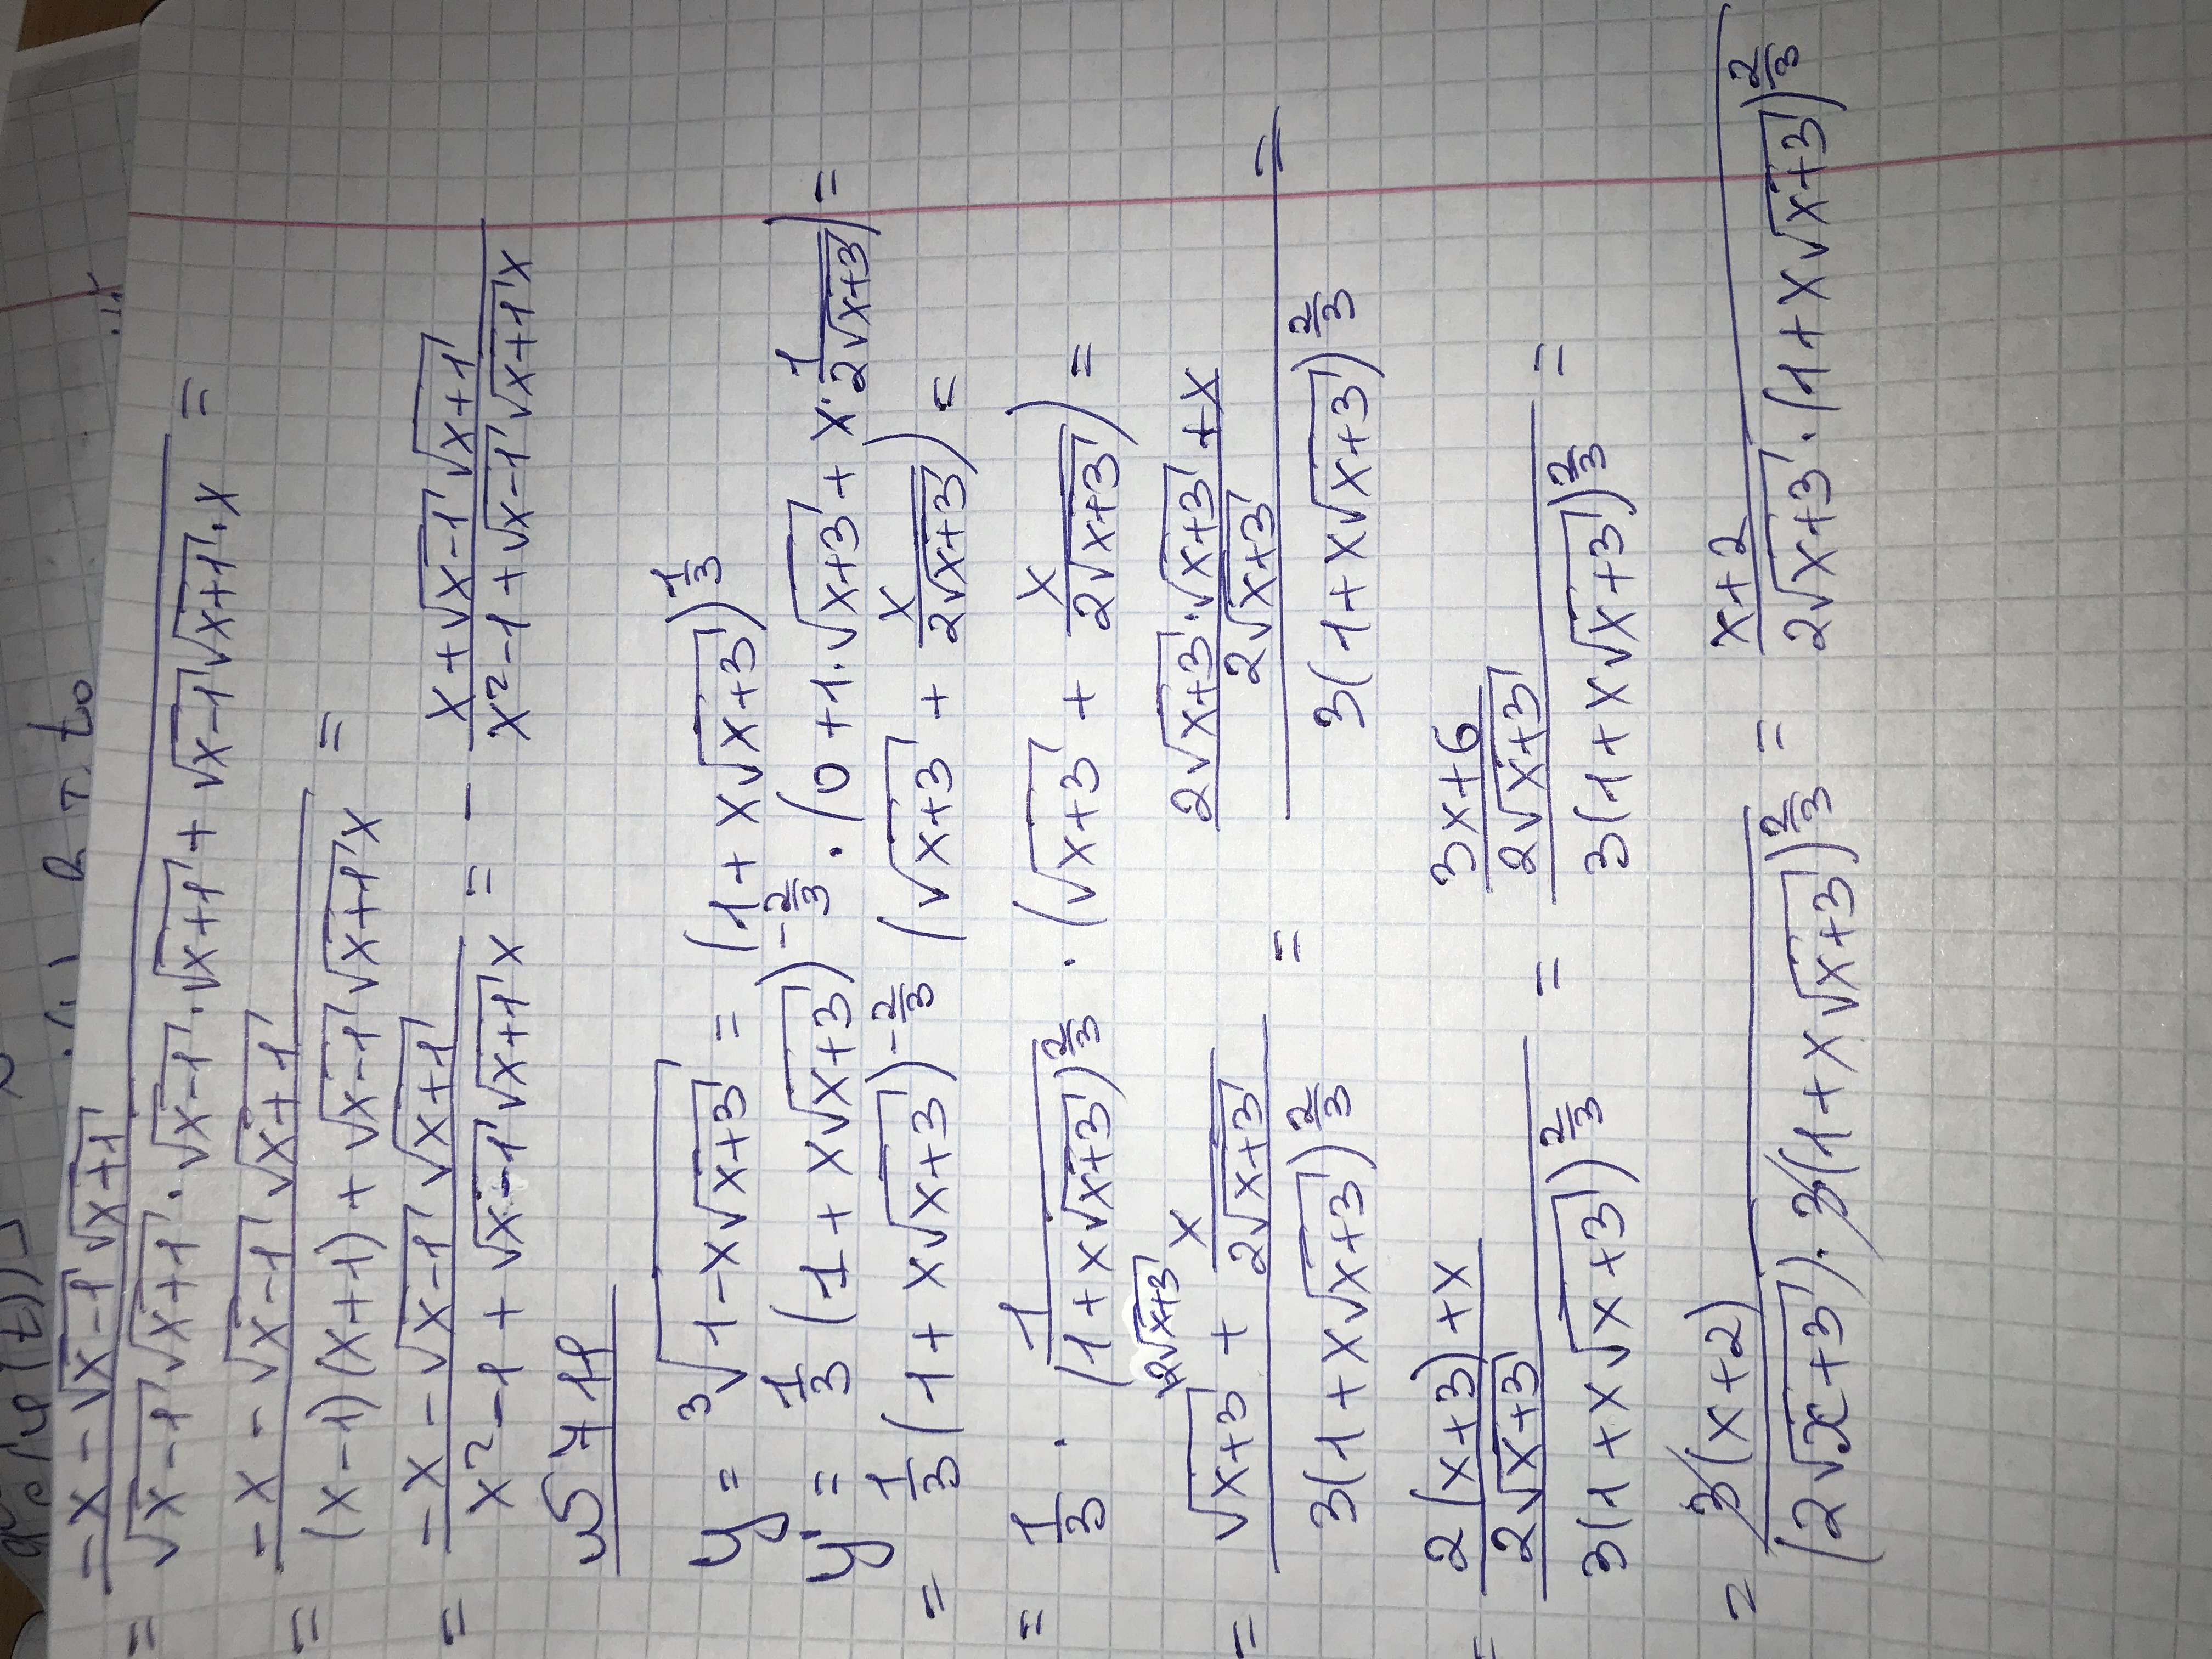 = (-x - √(x-1) √(x+1)) / (√(x-1) √(x+1) · √(x-1) · √(x+1) + √(x-1) √(x+1) · x) =
= (-x - √(x-1) √(x+1)) / ((x-1)(x+1) + √(x-1) √(x+1) x) =
= (-x - √(x-1) √(x+1)) / (x² - 1 + √(x-1) √(x+1) x) = - (x + √(x-1) √(x+1)) / (x² - 1 + √(x-1) √(x+1) x)
y = ³√(1 - x√(x+3)) = (1 + x√(x+3))^(1/3)
y' = 1/3 (1 + x√(x+3))^(-2/3) · (0 + 1 · √(x+3) + x · 1/(2√(x+3))) =
= 1/3 (1 + x√(x+3))^(-2/3) (√(x+3) + x/(2√(x+3))) =
= 1/3 · 1/(1 + x√(x+3))^(2/3) · (√(x+3) + x/(2√(x+3))) =
= (√(x+3) \2√(x+3) + x/(2√(x+3))) / (3(1 + x√(x+3))^(2/3)) = ((2√(x+3) · √(x+3) + x)/(2√(x+3))) / (3(1 + x√(x+3))^(2/3)) =
= ((2(x+3) + x)/(2√(x+3))) / (3(1 + x√(x+3))^(2/3)) = ((3x+6)/(2√(x+3))) / (3(1 + x√(x+3))^(2/3)) =
= 3(x+2) / ((2√(x+3)) · 3(1 + x√(x+3))^(2/3)) = (x+2) / (2√(x+3) · (1 + x√(x+3))^(2/3))